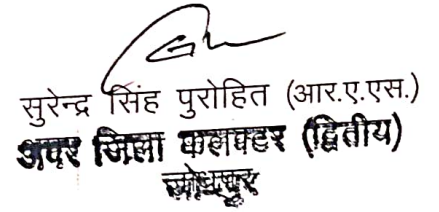 सुरेन्द्र सिंह पुरोहित (आर.ए.एस.)
अपर जिला कलक्टर (द्वितीय)
जोधपुर